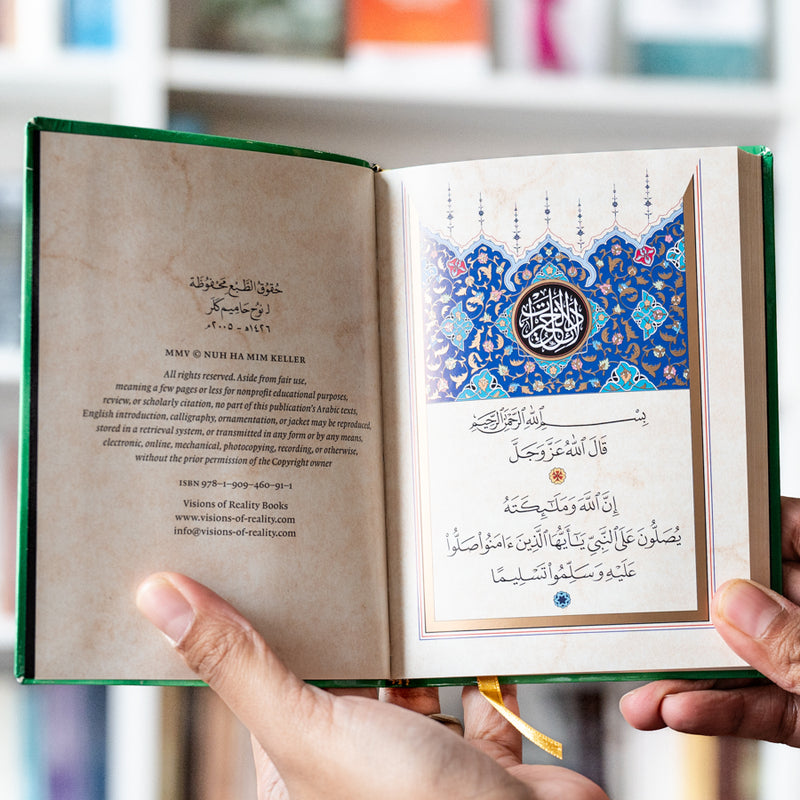 حُقُوقُ الطَّبْعِ مَحْفُوظَة
لِـ نُوح حَامِيم كَلَر
١٤٢٦هـ - ٢٠٠٥م
MMV © NUH HA MIM KELLER
All rights reserved. Aside from fair use,
meaning a few pages or less for nonprofit educational purposes,
review, or scholarly citation, no part of this publication's Arabic texts,
English introduction, calligraphy, ornamentation, or jacket may be reproduced,
stored in a retrieval system, or transmitted in any form or by any means,
electronic, online, mechanical, photocopying, recording, or otherwise,
without the prior permission of the Copyright owner
ISBN 978-1-909-460-91-1
Visions of Reality Books
www.visions-of-reality.com
info@visions-of-reality.com
دلائل الخيرات
بِسْمِ ٱللَّهِ ٱلرَّحْمَٰنِ ٱلرَّحِيمِ
قَالَ ٱللَّهُ عَزَّ وَجَلَّ
إِنَّ ٱللَّهَ وَمَلَٰٓئِكَتَهُ
يُصَلُّونَ عَلَى ٱلنَّبِيِّ يَٰٓأَيُّهَا ٱلَّذِينَ ءَامَنُوا۟ صَلُّوا۟
عَلَيْهِ وَسَلِّمُوا۟ تَسْلِيمًا